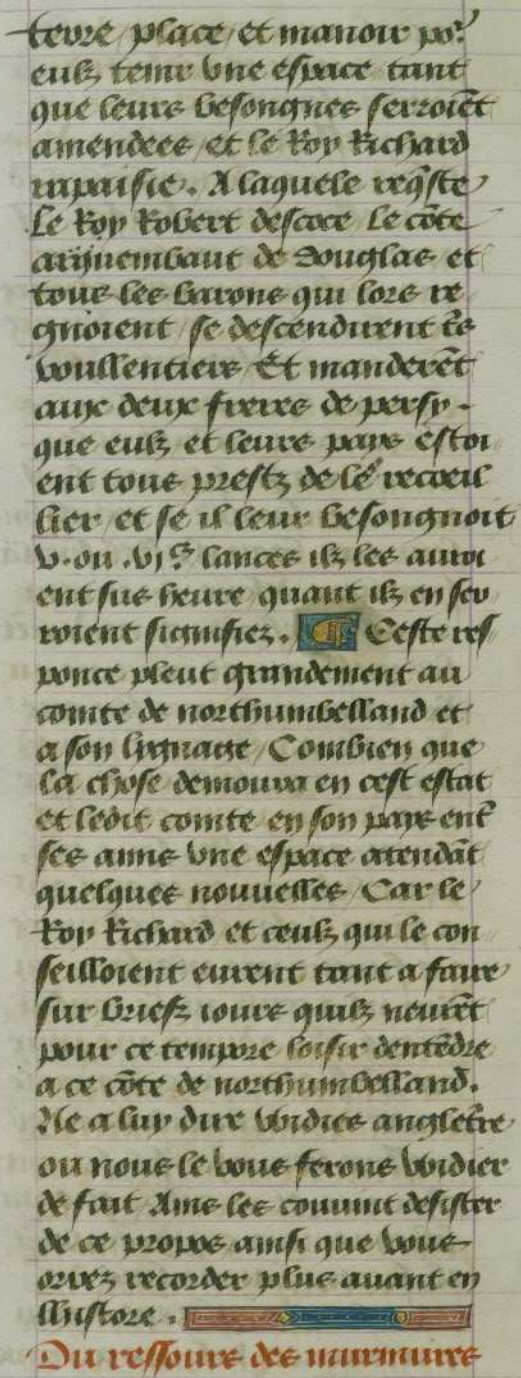 terre / place / et manoir po᷑
eulz tenir vne espace tant
que leurs besongnes serroiẽt
amendees / et le Roy Richard
rapaisie . A laquele reqs̃te
Le Roy Robert descoce Le cõte
arquembaut de douglas et
tous les barons qui lors re
gnoient / se descendirent tẽs
voullentiers Et manderẽt
aux deux freres de persy .
que eulz et leurs pays estoi
ent tous prestz de les recoeil
lier / et se il leur besongnoit
v . ou . vjᶜ lances ilz les auroi
ent sus heure quant ilz en ser
roient signifiez . Ceste res
ponce pleut grandement au
comte de northumbelland et
a son lignaige / Combien que
La chose demoura en cest estat
et ledit comte en son pays ent̃
ses amis vne espace atendãt
quelques nouuelles / Car le
Roy Richard et ceulz qui le con
seilloient eurent tant a faire
sur briefz iours quilz neurẽt
pour ce tempore loisir dentẽdre
a ce cõte de northumbelland .
Ne a luy dire vuidies anglet̃re
ou nous le vous ferons vuidier
de fait Ains les conuint desister
de ce propos ainsi que vous
orrez recorder plus auant en
llnistore .
Du ressours des murmures